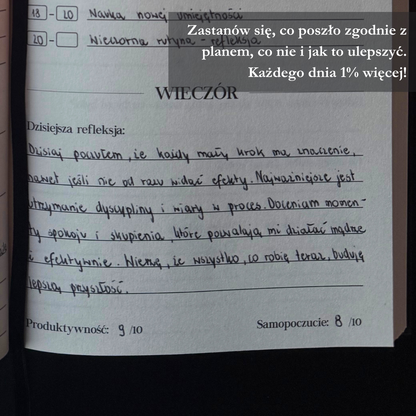 18 - 20 Nauka nowej umiejętności
20 - Wieczorna rutyna - refleksja
Zastanów się, co poszło zgodnie z
planem, co nie i jak to ulepszyć.
Każdego dnia 1% więcej!
WIECZÓR
Dzisiejsza refleksja:
Dzisiaj poczułem, że każdy mały krok ma znaczenie,
nawet jeśli nie od razu widać efekty. Najważniejsze jest
utrzymanie dyscypliny i wiary w proces. Doceniam momen-
ty spokoju i skupienia, które pozwalają mi działać mądrze
i efektywnie. Wierzę, że wszystko, co robię teraz, buduje
lepszą przyszłość.
Produktywność: 9 /10 Samopoczucie: 8 /10